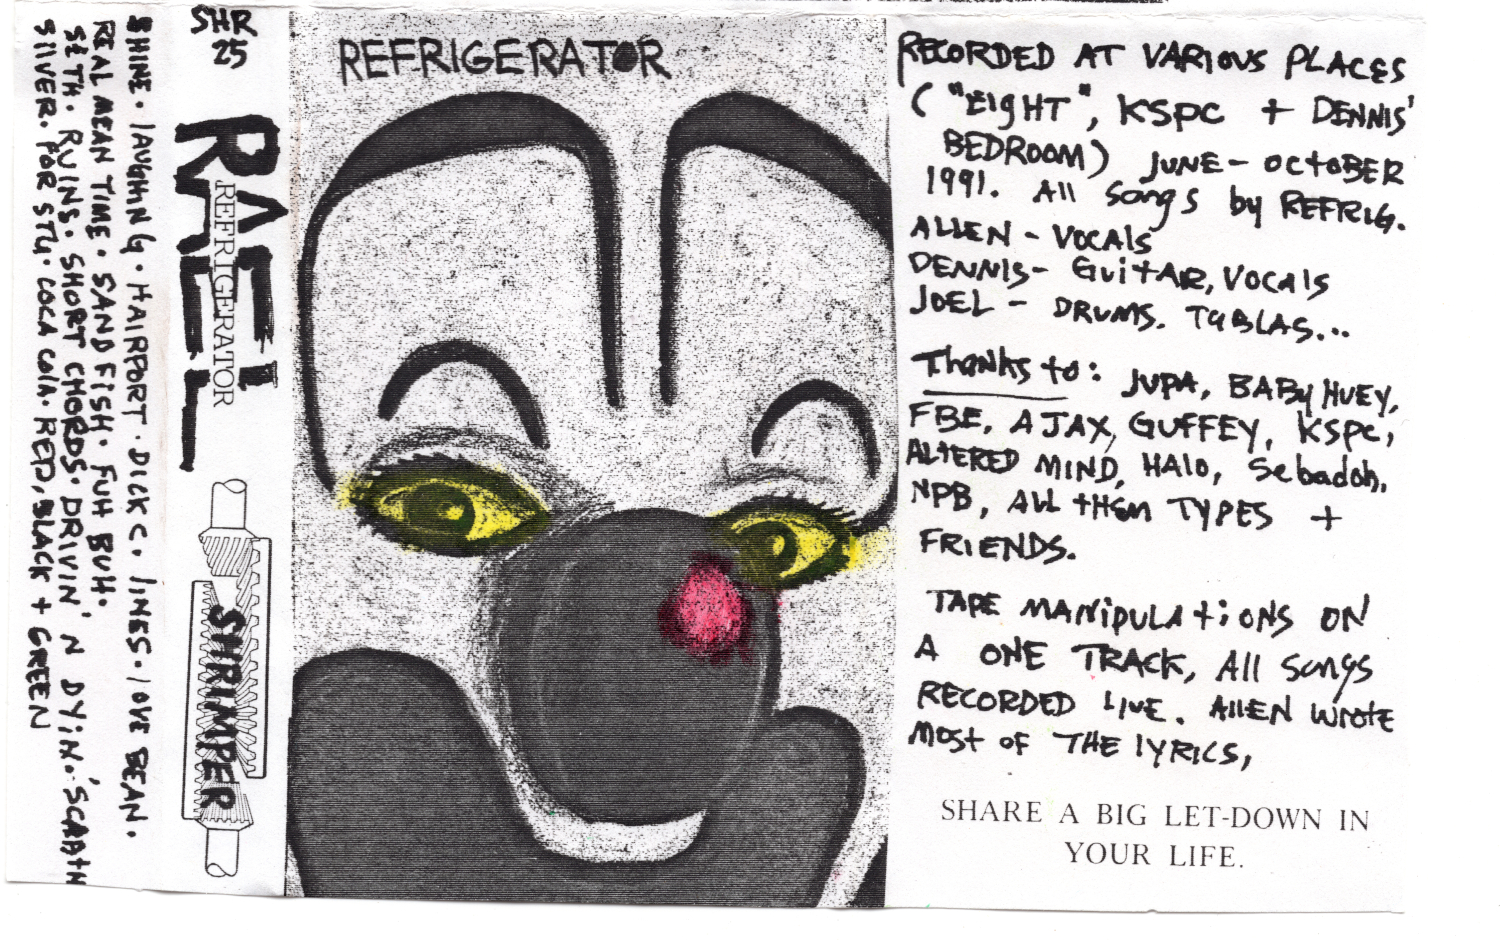 SHINE. LAUGHING. HAIRPORT. DICK C. LINES. LOVE BEAN.
REAL MEAN TIME. SAND FISH. FUH BUH.
SETH. RUINS. SHORT CHORDS. DRIVIN' N DYIN'. SCARTH
SILVER. FOR STU. COCA COLA RED, BLACK + GREEN
SHR
25
RAEL
REFRIGERATOR
SHRIMPER
REFRIGERATOR
RECORDED AT VARIOUS PLACES
("EIGHT", KSPC + DENNIS'
BEDROOM) JUNE - OCTOBER
1991. All songs by REFRIG.
ALLEN - VOCALS
DENNIS - GUITAR, VOCALS
JOEL - DRUMS. TABLAS...
Thanks to: JUPA, BABY HUEY,
FBE, AJAX, GUFFEY, KSPC,
ALTERED MIND, HALO, Sebadoh,
NPB, ALL THEM TYPES +
FRIENDS.
TAPE MANIPULATIONS ON
A ONE TRACK, All songs
RECORDED LIVE. ALLEN WROTE
MOST OF THE LYRICS,
SHARE A BIG LET-DOWN IN
YOUR LIFE.